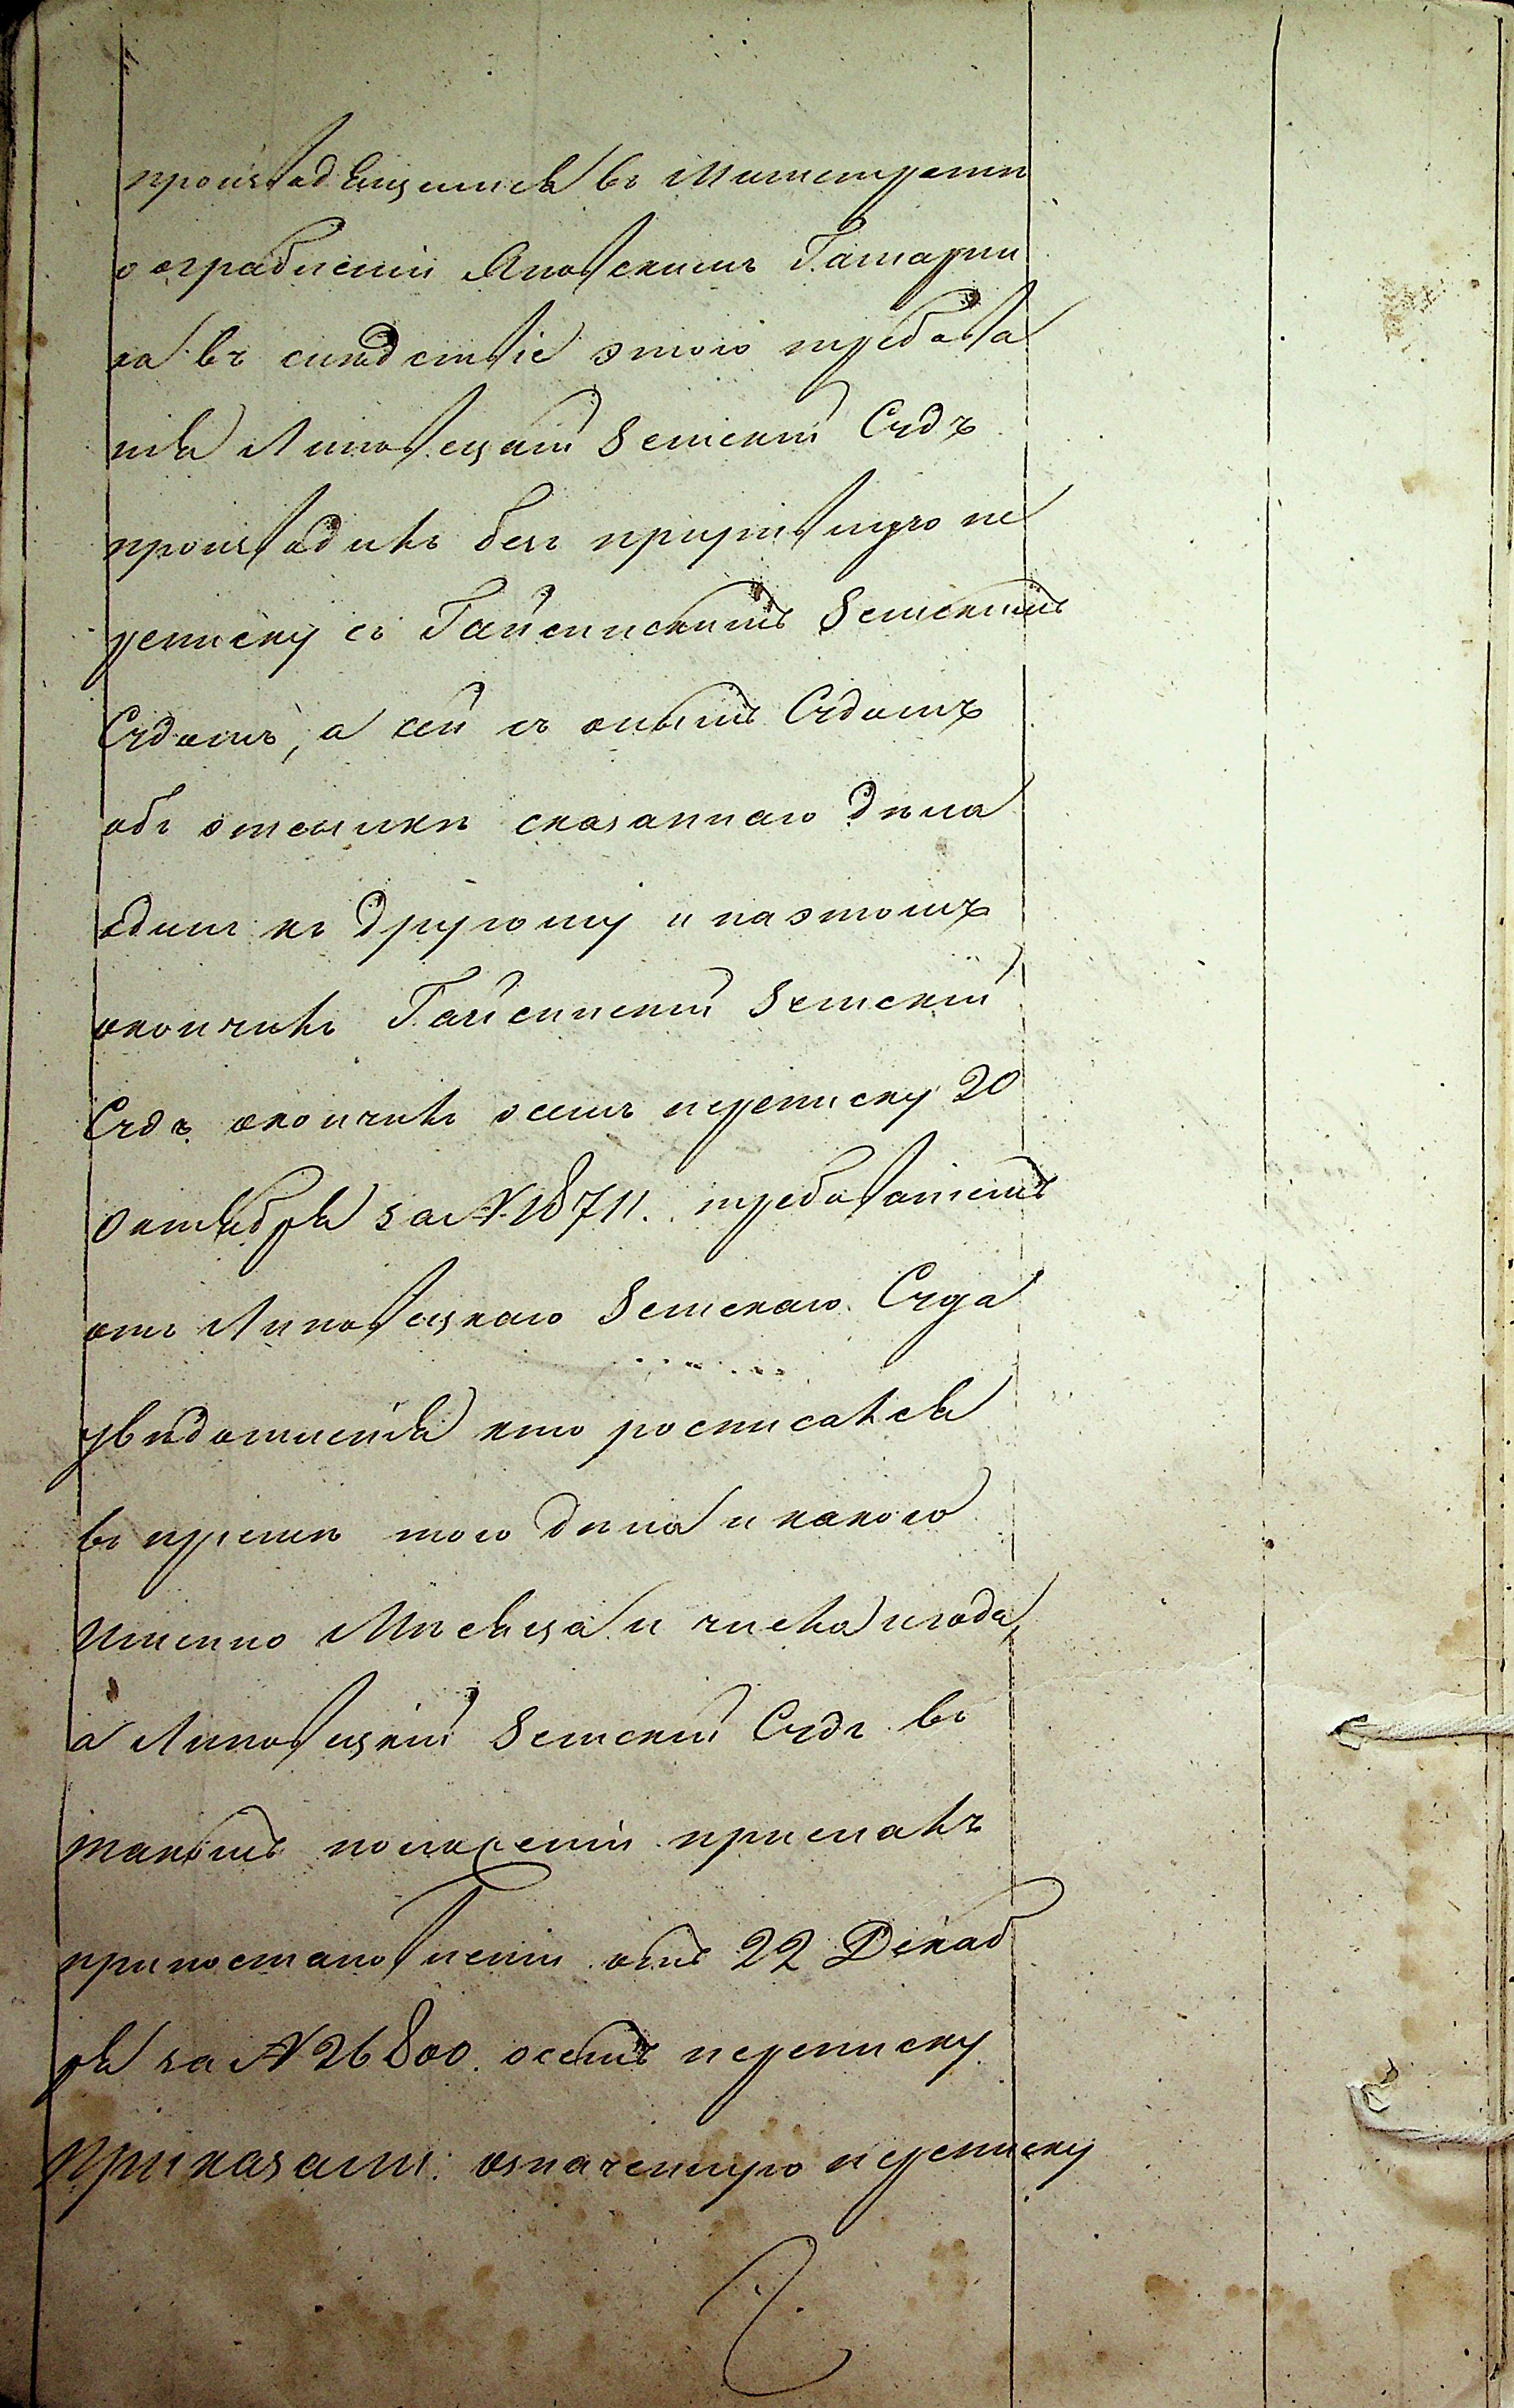 производящемся въ Магистратѣ
о ограбленіи Яновскимъ Гатарин
ка въ слѣдствіе этого требова
нія Липовецкій Земскій Судъ
производилъ безпрерывную пе
реписку съ Гайсинскимъ Земскимъ
Судомъ, а сей съ онымъ Судомъ
объ отсылкѣ сказаннаго дѣла
одинъ къ другому и наэтомъ
окончилъ Гайсинскій Земскій
Судъ окончилъ осемъ переписку 20
Октября за № 18711. требованіемъ
отъ Липовецкаго Земскаго Суда
увѣдомленія кто росписался
въ пріемѣ того дѣла и какого
именно Мѣсяца и числа и года,
а Липовецкій Земскій Судъ въ
такомъ положеніи прислалъ
припостановленіи отъ 22 Декаб
ря за № 26800. осемъ переписку
Приказали: означенную переписку